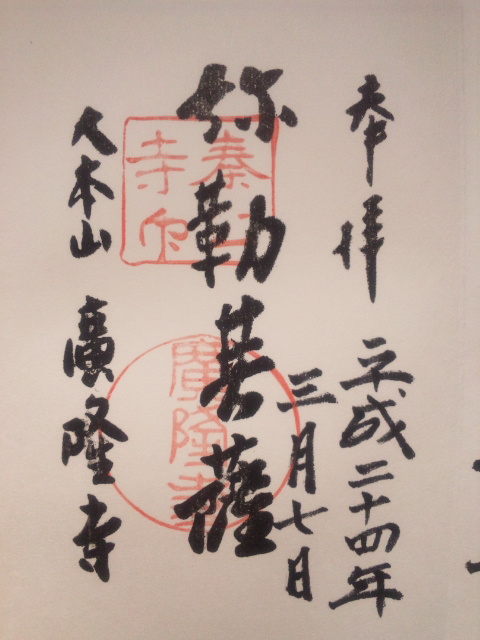 奉拝
平成二十四年
三月七日
弥勒菩薩
大本山
廣隆寺
廣隆寺